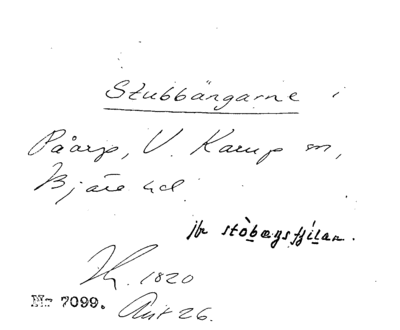 Stubbängarne i
Påarp, V. Karup sn,
Bjäre hd.
jfr stòbæŋsfjílan.
1820
Nr 7099. Akt 26.